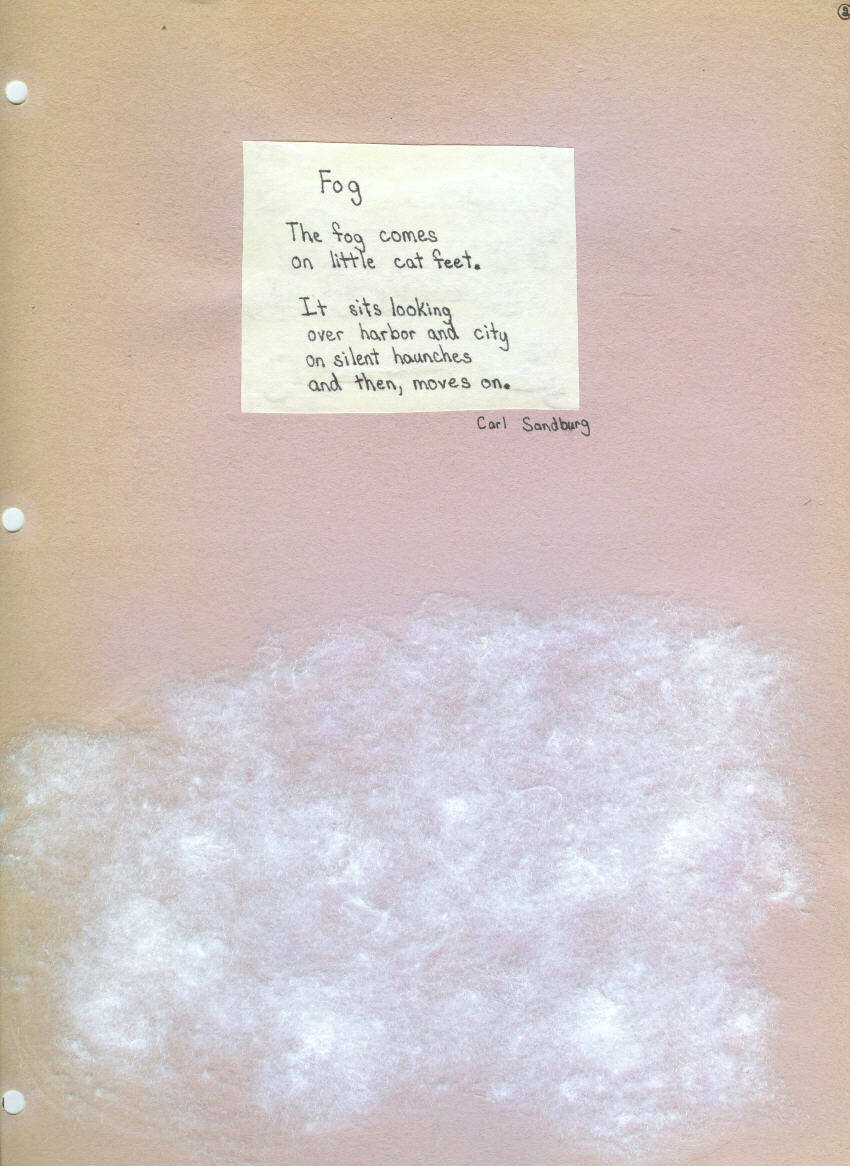 ②
Fog
The fog comes
on little cat feet.
It sits looking
over harbor and city
on silent haunches
and then, moves on.
Carl Sandburg